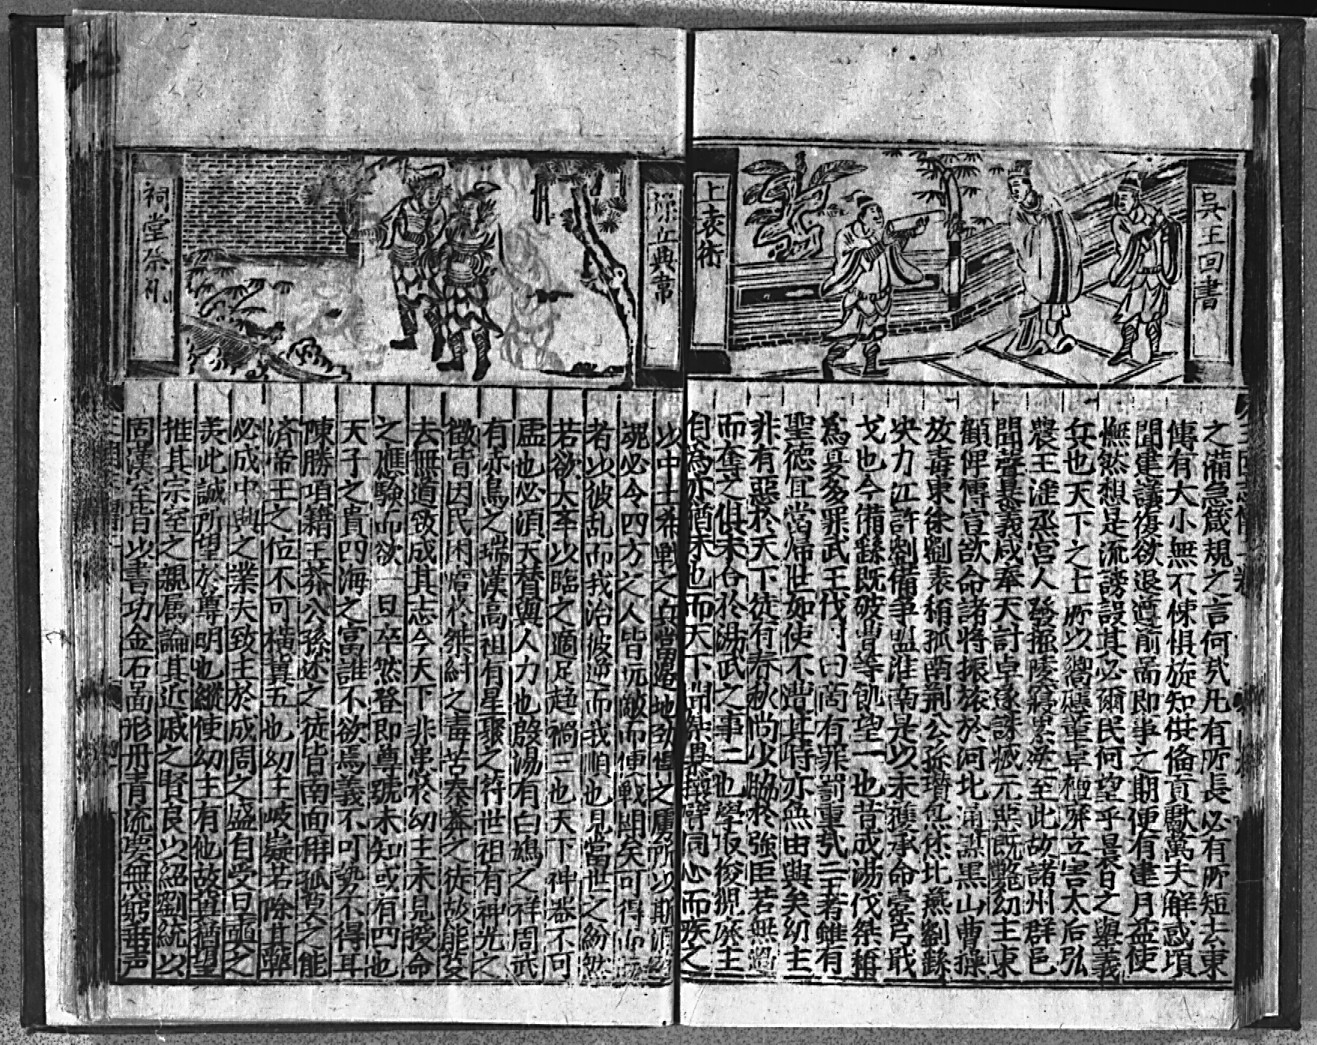 吳王回書
上袁術
之備急箴規之言何㦲凢有所長必有所短去東
傳有大小無不悚俱旋知供偹貢獻萬夫解惑頃
聞建議復欲退遵前啚即事之期便有建月益使
憮然想是流謗設其必爾民何望乎曩日之舉義
兵也天下之士所以嚮應董卓擅廢立害太后弘
農王淮烝宮人發掘陵寢累海至此故諸州群邑
聞聲暴義咸奉天討卓遂誅滅元惡既斃幼主東
顧俾傅宣欲命諸將振旅於河北通謀黑山曹操
放毒東徐劉表稱孤南荆公孫瓉炰烋北燕劉繇
决力江許劉備爭盟淮南是以未獲承命櫜弓戢
戈也今備繇既破曹等飢望一也昔成湯伐桀稱
為夏多罪武王伐紂曰商有罪罰重㦲二王者雖有
聖德宜當歸世如使不遭其時亦無由與矣幼主
非有惡於天下徒有春秋尚少脇於強臣若無過
而奪之俱未合於湯武之事二也學坂俊覬廢主
自為亦猶未也而天下聞桀攘臂同心而疾之
操立典韋
祠堂祭礼
以中土希戰之兵當邊地勁虜之虜所以斯
魂必令四方之人皆玩敵而便戰鬪矣可得而
者以彼乱而我治彼逆而我順也見當世之紛然
若欲大举以臨之適足趋禍三也天下神器不可
虛也必湏天替與人力也殷湯有白鳩之祥周武
有赤烏之瑞漢高祖有星聚之符世祖有神光之
徵皆因民困瘁於桀紂之毒苦秦莽之徒故能芟
去無道致成其志今天下非患於幼主未見授命
之應驗而欲一旦卒然登即尊號未知或有四也
天子之貴四海之富誰不欲焉義不可勢不得耳
陳勝項籍王莽公孫述之徒皆南面稱孤莫之能
濟帝王之位不可橫冀五也幼主岐嶷若除其
必成中興之業夫致主於成周之盛自受旦奭之
美此誠所望於尊明也縱使幼主有他故猶望
推其宗室之親屬論其近戚之賢良以紹劉統以
固漢室皆以書功金石啚形丹青流慶無窮垂声